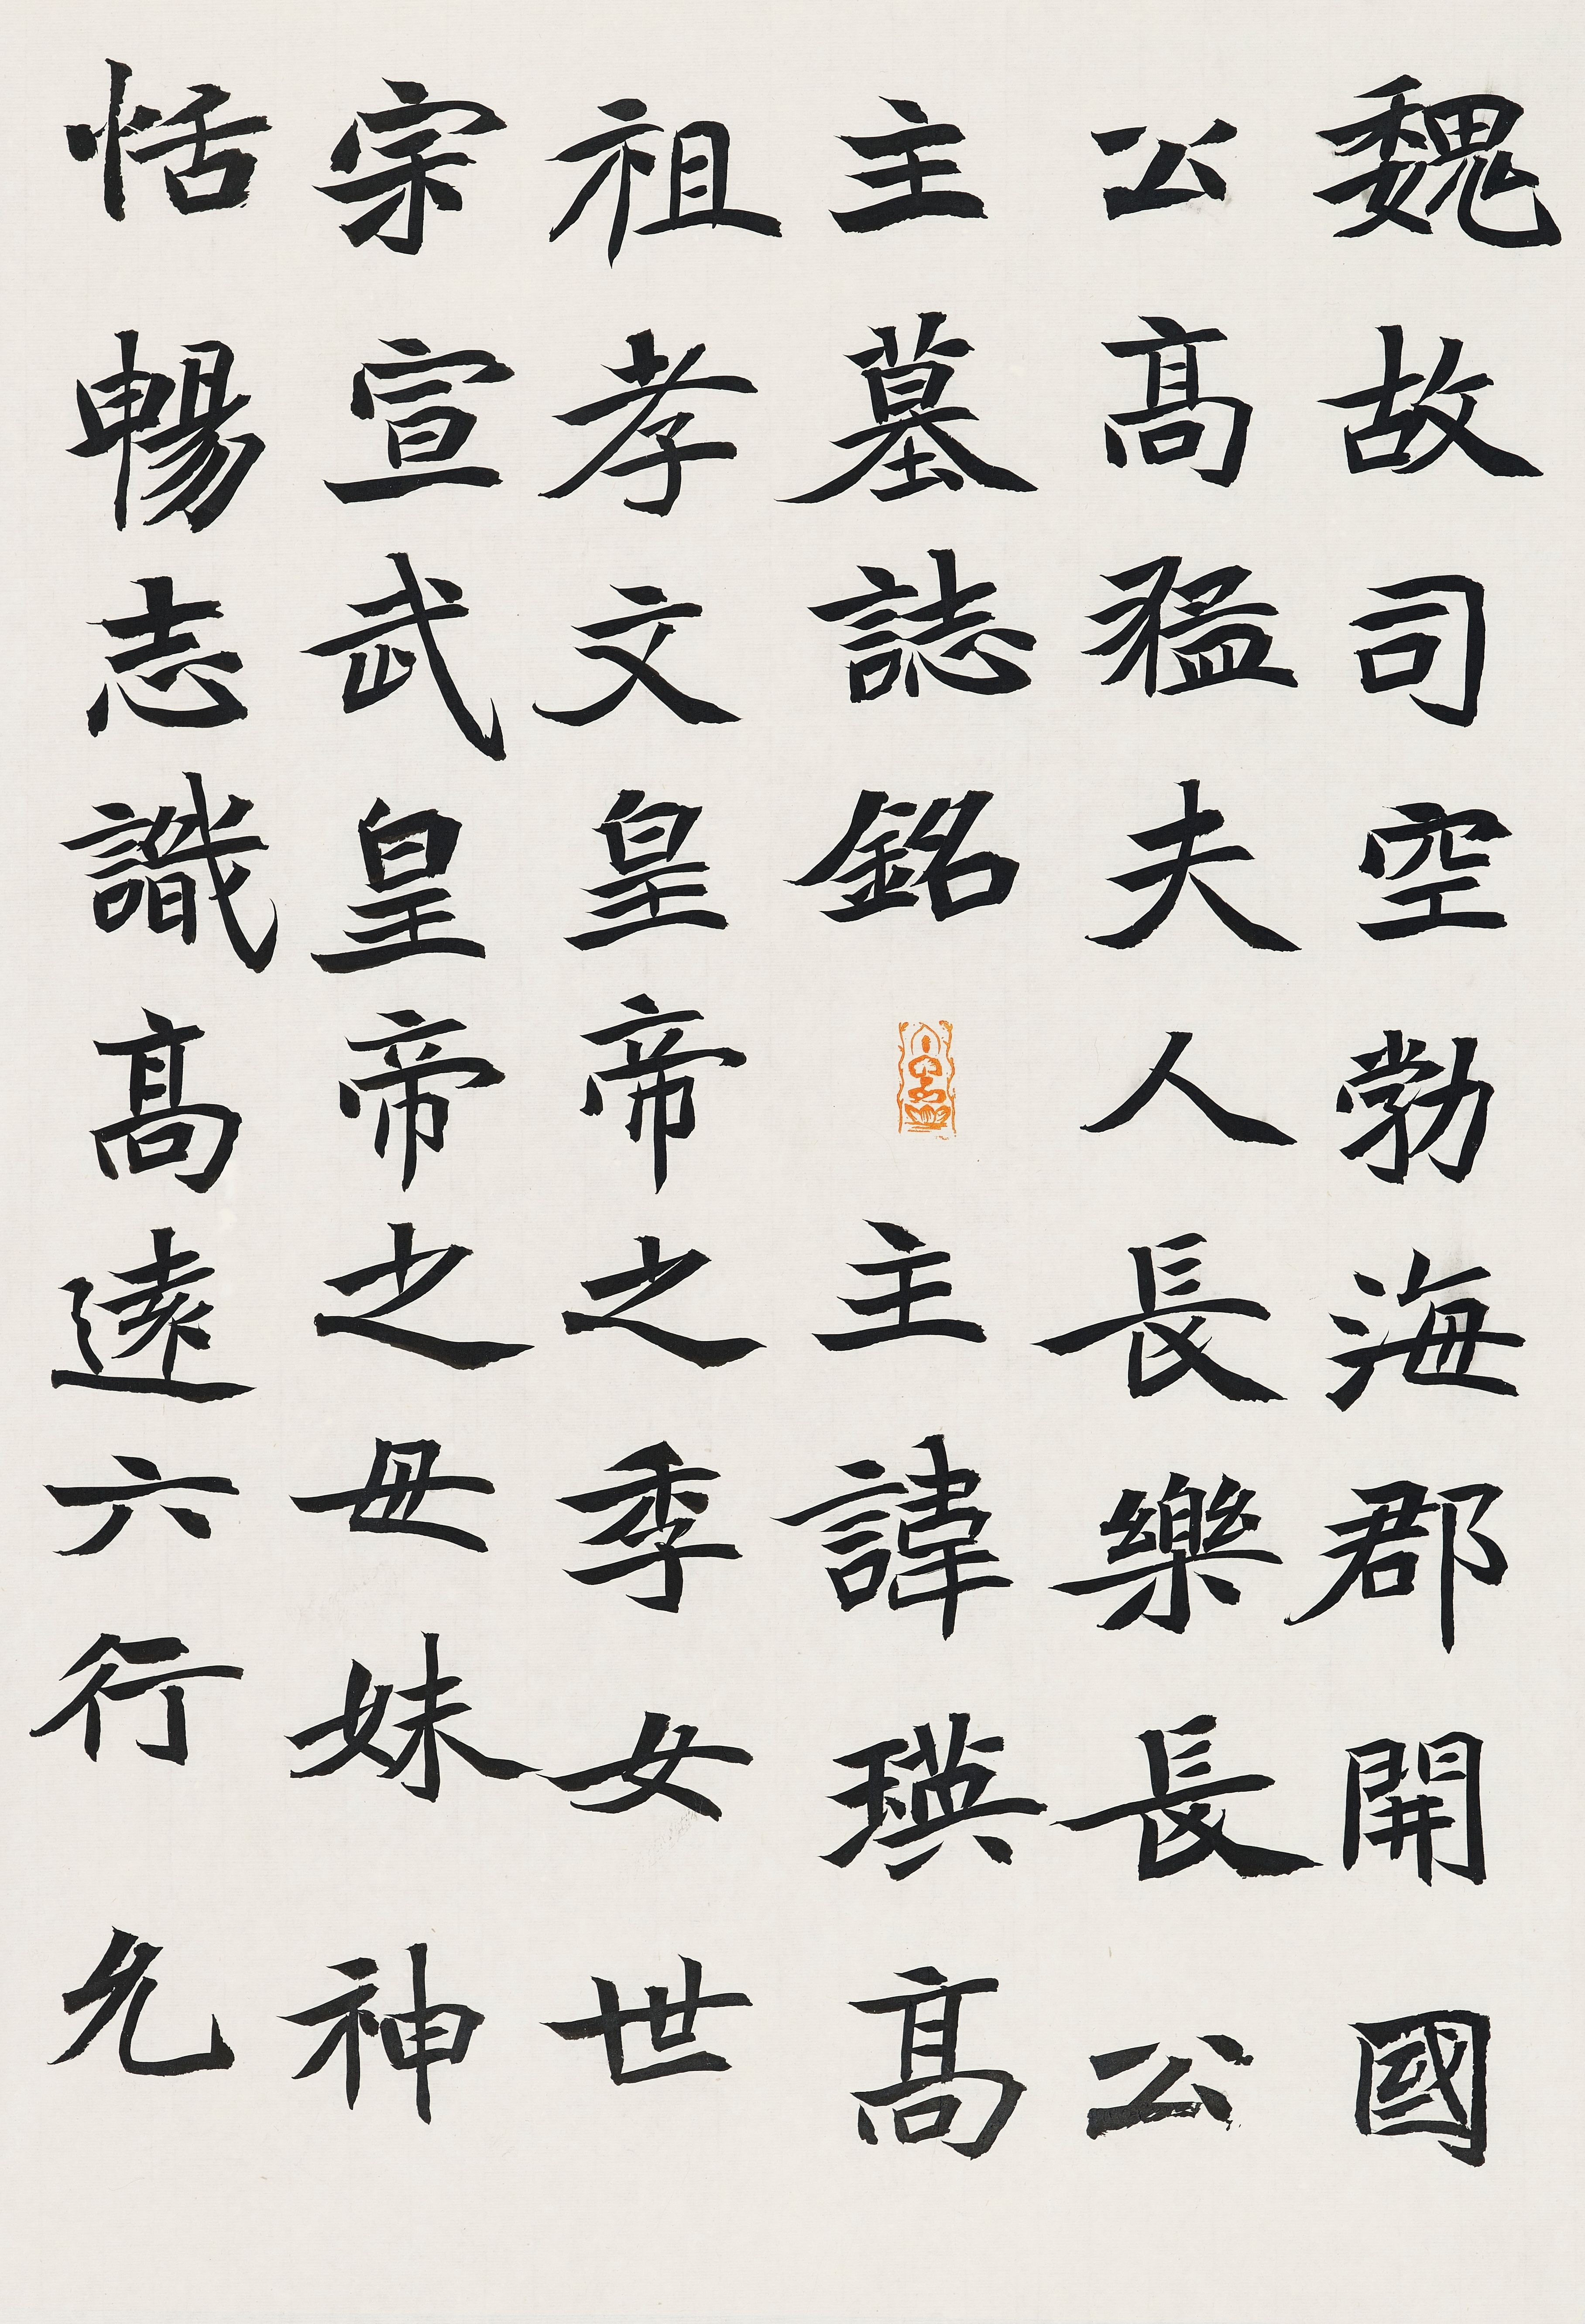 魏故司空勃海郡開國
公高猛夫人長樂長公
主墓誌銘 主諱瑛高
祖孝文皇帝之季女世
宗宣武皇帝之母妹神
恬暢志識高遠六行允